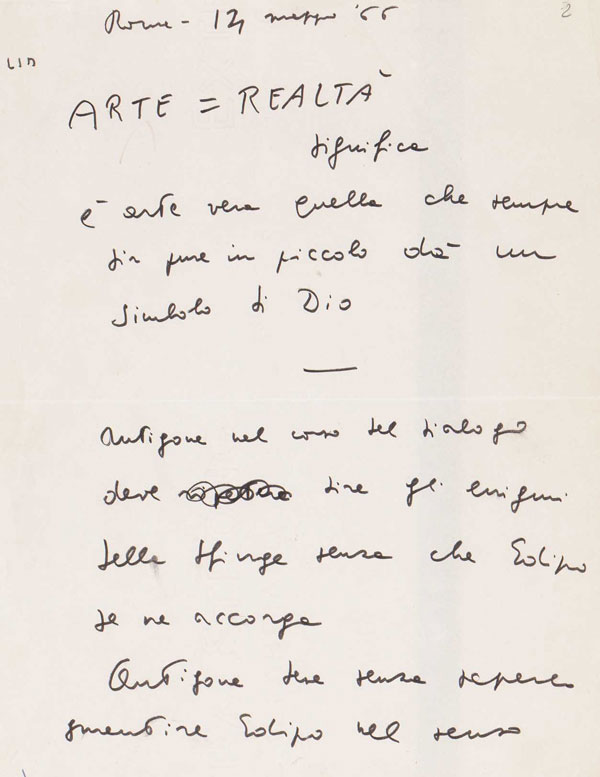 Roma - 12 maggio '66
2
LID
ARTE = REALTÀ
significa
è arte vera quella che sempre
sia pure in piccolo dà un
simbolo di Dio
Antigone nel corso del dialogo
deve dire gli enigmi
della Sfinge senza che Edipo
se ne accorga
Antigone deve senza saperlo
smentire Edipo nel senso